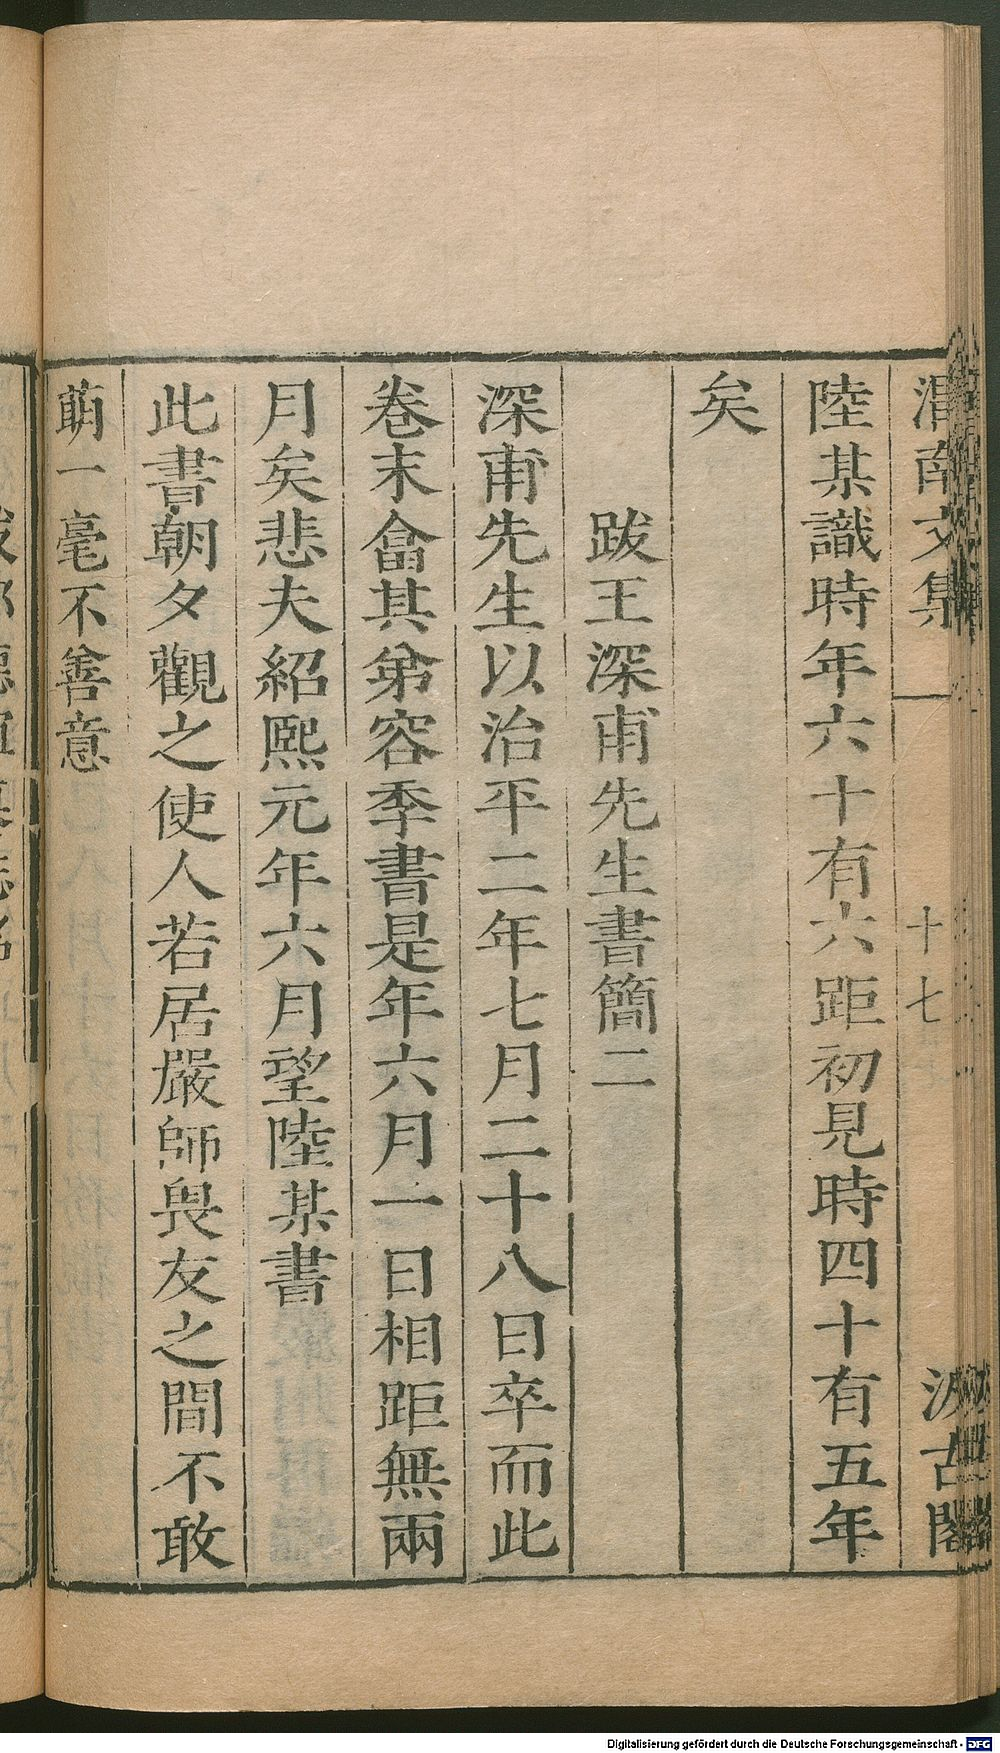 渭南文集 十七 汲古閣
陸某識時年六十有六距初見時四十有五年
矣
跋王深甫先生書簡二
深甫先生以治平二年七月二十八日卒而此
卷末畣其弟容季書是年六月一日相距無兩
月矣悲夫紹熙元年六月望陸某書
此書朝夕觀之使人若居嚴師畏友之間不敢
萌一毫不善意
Digitalisierung gefördert durch die Deutsche Forschungsgemeinschaft - DFG